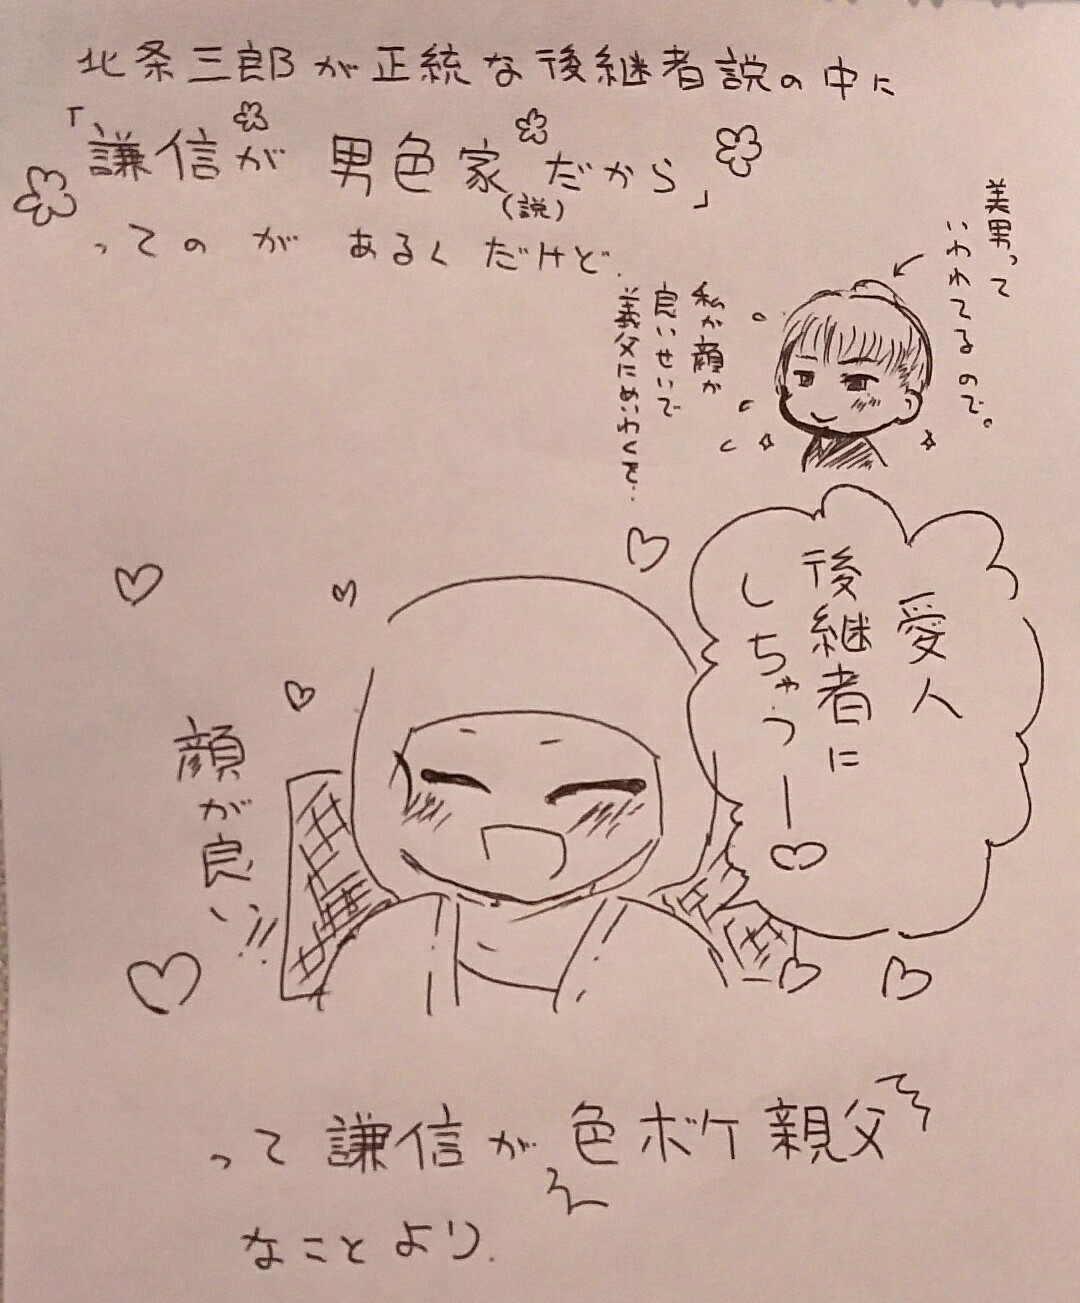 北条三郎が正統な後継者説の中に
「謙信が男色家だから」
(説)
ってのがあるくだけど.
美男って
いわれてるので。
私が顔が
良いせいで
義父にめいわくを..
愛人
後継者に
しちゃっー♡
顔が良い!!
って謙信が色ボケ親父
なことより.